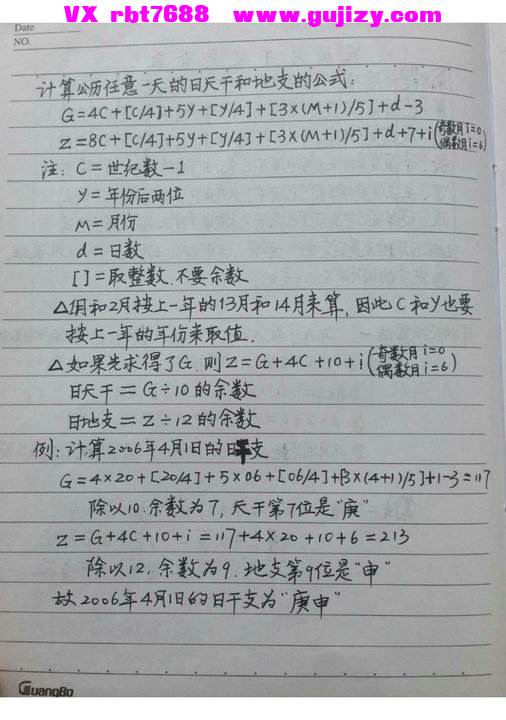 VX rbt7688 www.gujizy.com
Date
NO.
计算公历任意一天的日天干和地支的公式：
G=4C+[C/4]+5y+[y/4]+[3×(M+1)/5]+d-3
Z=8C+[C/4]+5y+[y/4]+[3×(M+1)/5]+d+7+i(奇数月i=0 偶数月i=6)
注：C=世纪数-1
y=年份后两位
M=月份
d=日数
[]=取整数,不要余数
△1月和2月按上一年的13月和14月来算,因此C和y也要
按上一年的年份来取值.
△如果先求得了G.则Z=G+4C+10+i(奇数月i=0 偶数月i=6)
日天干=G÷10的余数
日地支=Z÷12的余数
例：计算2006年4月1日的日干支
G=4×20+[20/4]+5×06+[06/4]+[3×(4+1)/5]+1-3=117
除以10.余数为7,天干第7位是"庚"
Z=G+4C+10+i=117+4×20+10+6=213
除以12.余数为9.地支第9位是"申"
故2006年4月1日的日干支为"庚申"
GuangBo